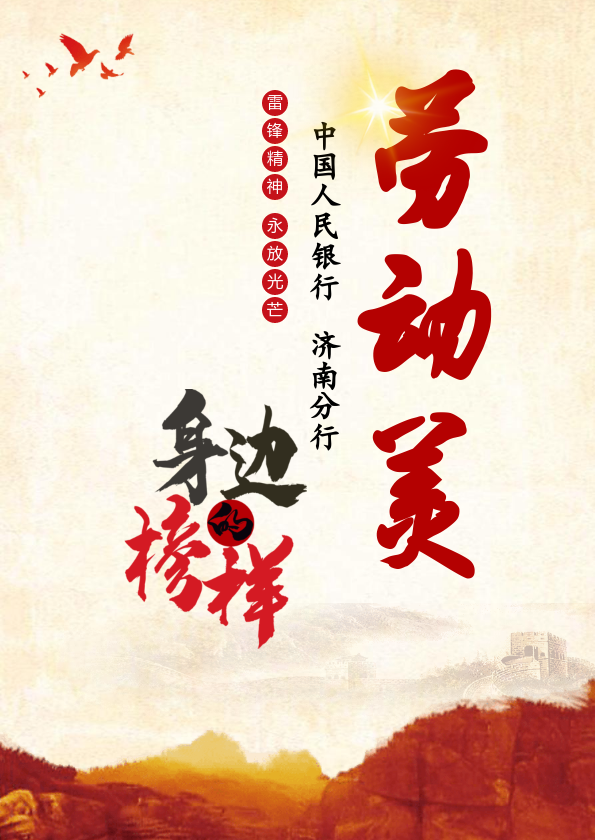 劳动美
中国人民银行 济南分行
雷锋精神 永放光芒
身边
的
榜样